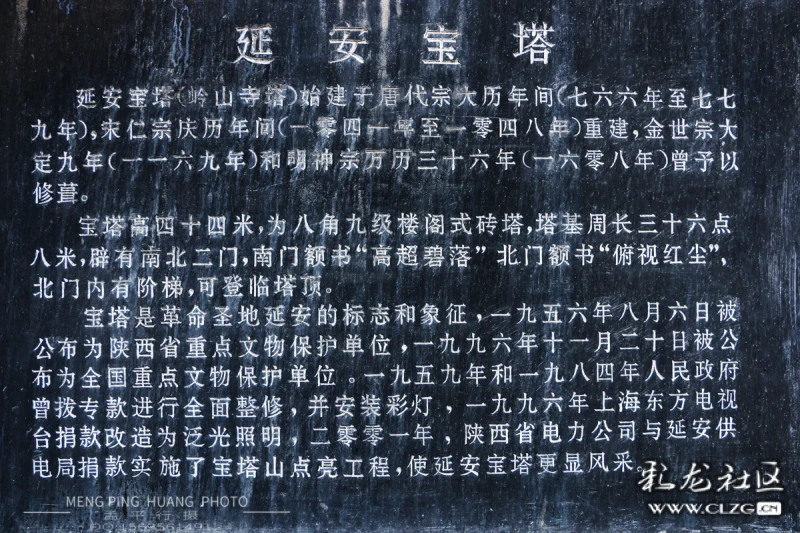 延安宝塔
延安宝塔(岭山寺塔)始建于唐代宗大历年间(七六六年至七七
九年),宋仁宗庆历年间(一零四一年至一零四八年)重建,金世宗大
定九年(一一六九年)和明神宗万历三十六年(一六零八年)曾予以
修葺。
宝塔高四十四米,为八角九级楼阁式砖塔,塔基周长三十六点
八米,辟有南北二门,南门额书“高超碧落”北门额书“俯视红尘”,
北门内有阶梯,可登临塔顶。
宝塔是革命圣地延安的标志和象征,一九五六年八月六日被
公布为陕西省重点文物保护单位,一九九六年十一月二十日被公
布为全国重点文物保护单位。一九五九年和一九八四年人民政府
曾拨专款进行全面整修,并安装彩灯,一九九六年上海东方电视
台捐款改造为泛光照明,二零零一年,陕西省电力公司与延安供
电局捐款实施了宝塔山点亮工程,使延安宝塔更显风采。
MENG PING HUANG PHOTO
孟平行摄
彩龙社区
WWW.CLZG.CN